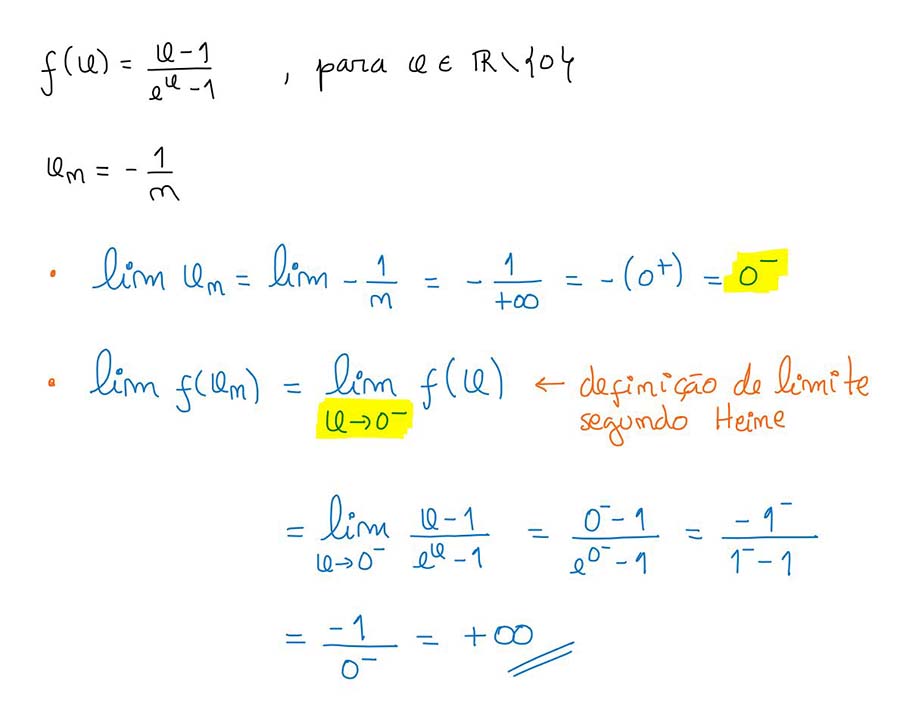 f(x) = (x-1)/(e^x - 1) , para x ∈ ℝ\{0}
x_n = - 1/n
• lim x_n = lim - 1/n = - 1/+∞ = -(0⁺) = 0⁻
• lim f(x_n) = lim_{x→0⁻} f(x) ← definição de limite
segundo Heine
= lim_{x→0⁻} (x-1)/(e^x - 1) = (0⁻-1)/(e^{0⁻} - 1) = -1⁻/(1⁻-1)
= -1/0⁻ = +∞